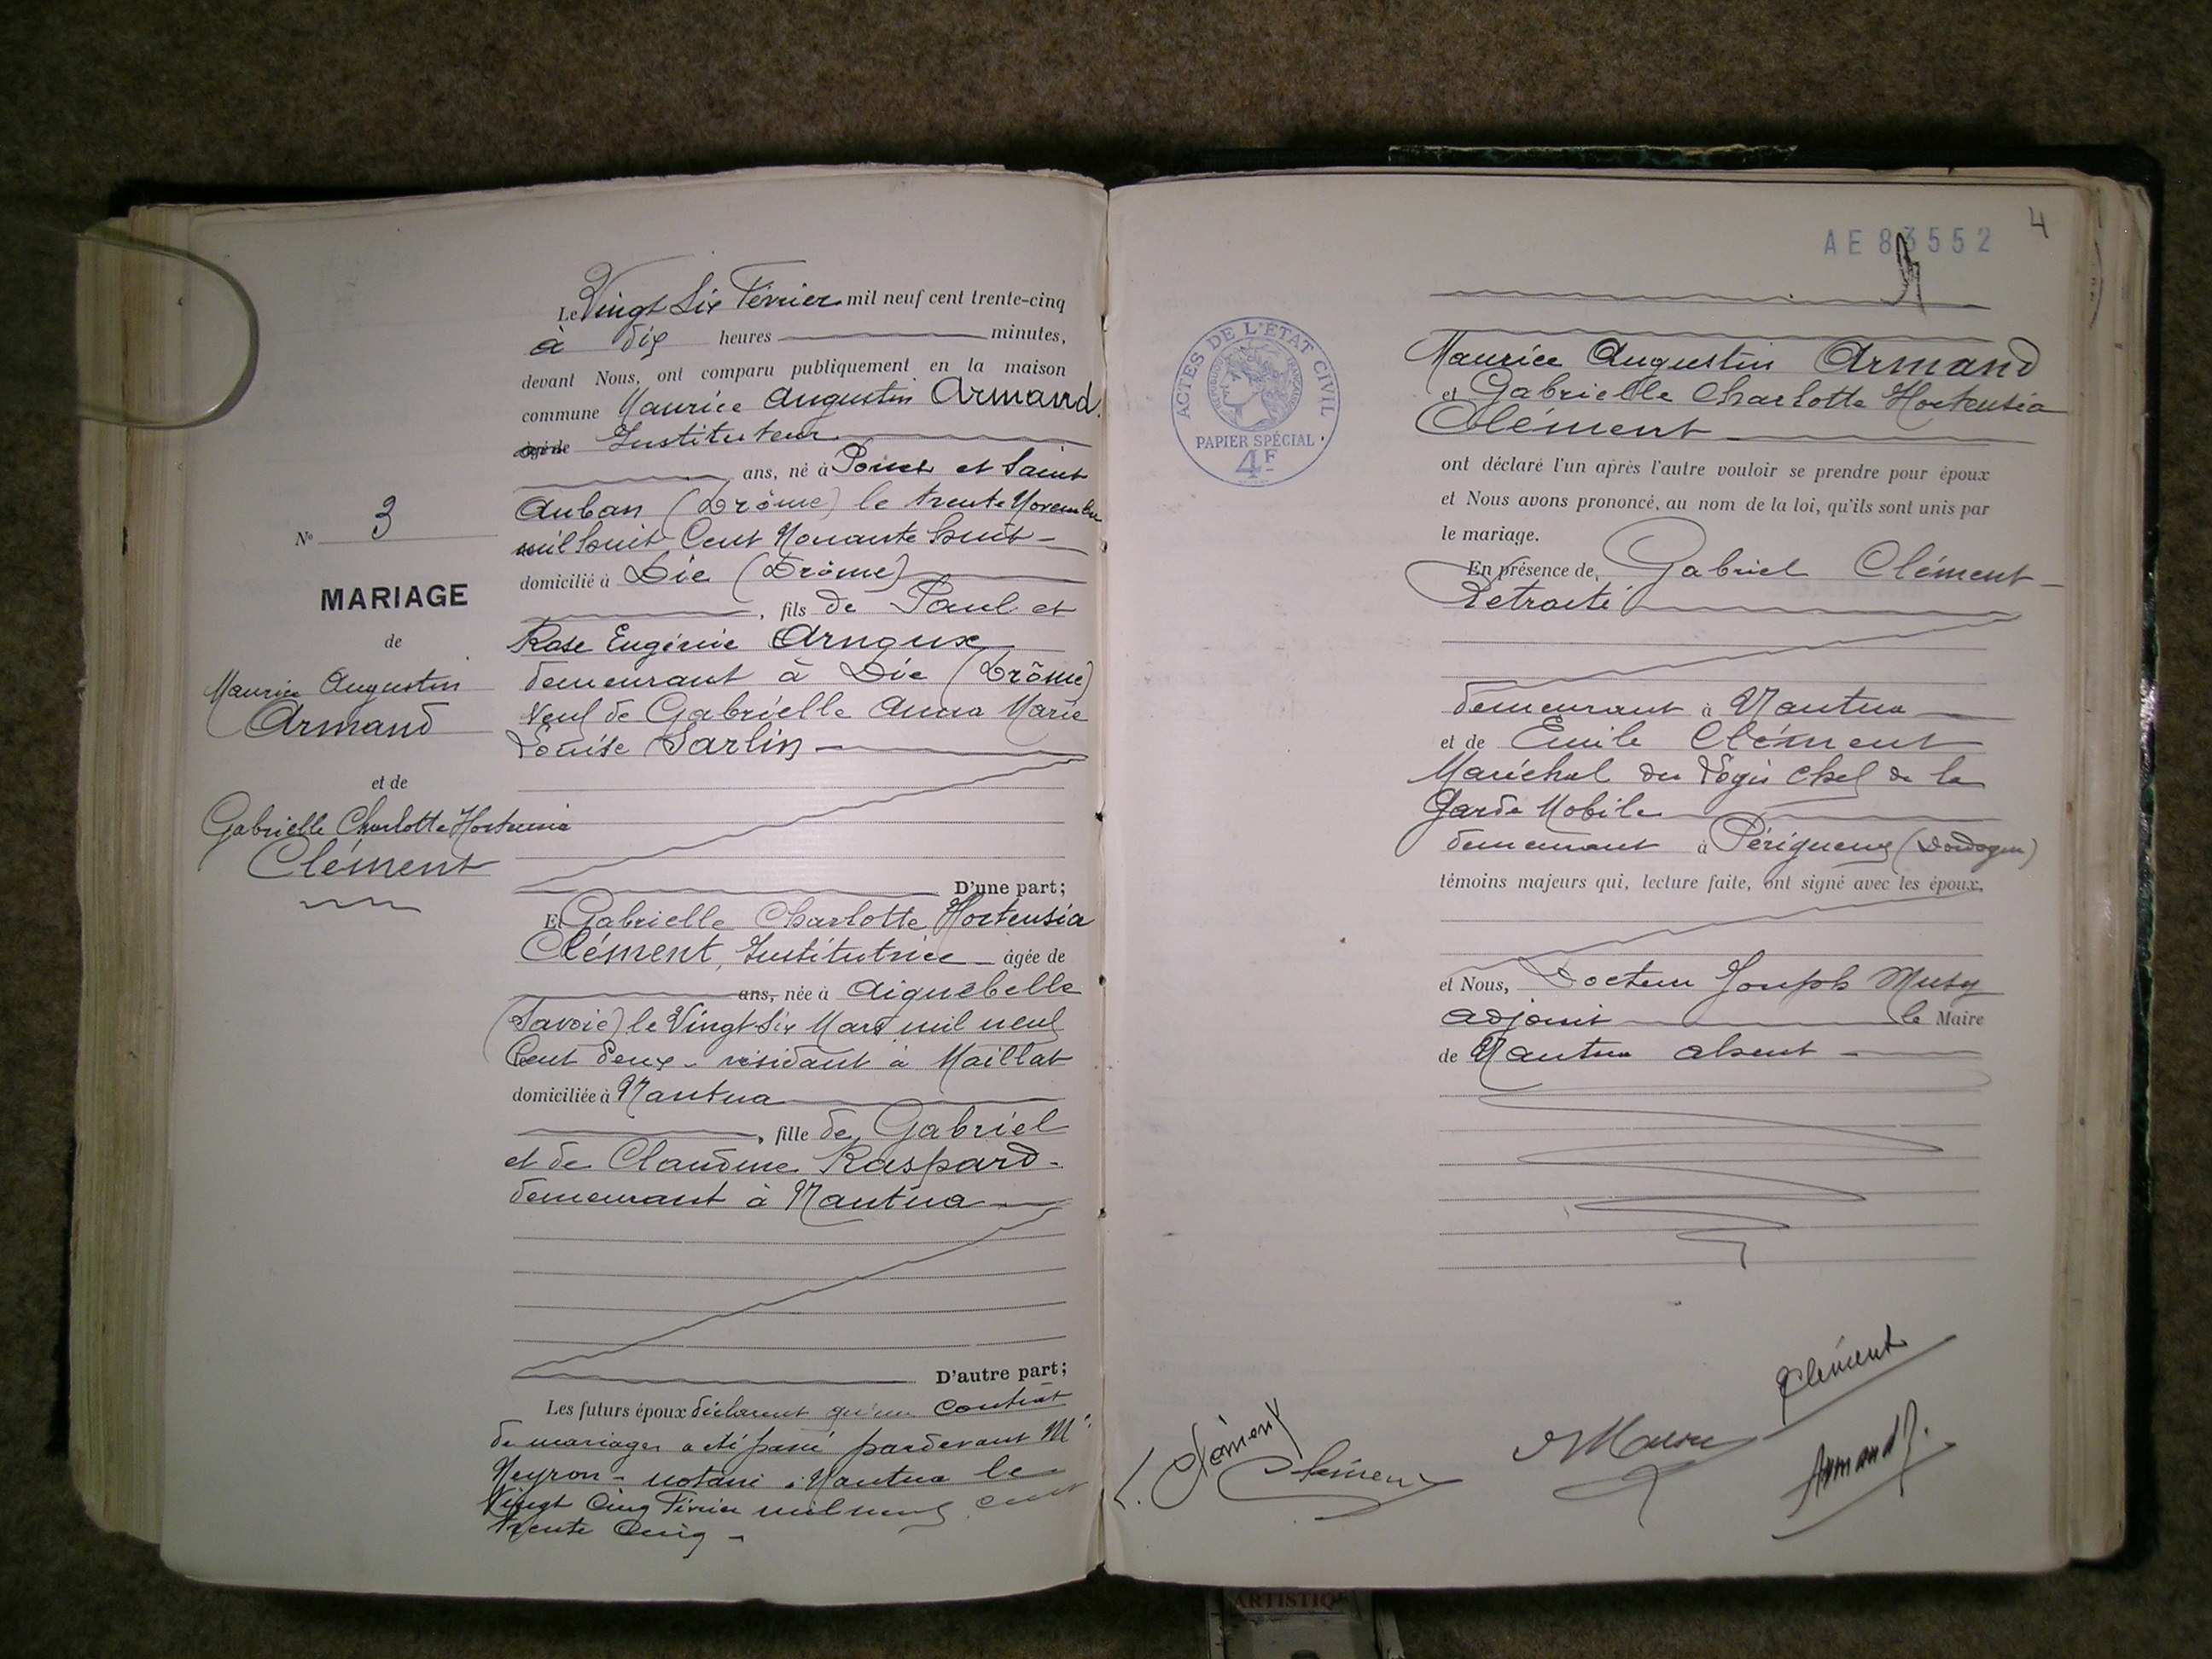 N° 3
MARIAGE
de
Maurice Augustin
Armand
et de
Gabrielle Charlotte Hortensia
Clément
Le Vingt Six Février mil neuf cent trente-cinq
à dix heures minutes,
devant Nous, ont comparu publiquement en la maison
commune Maurice Augustin Armand.
âgé de Instituteur
ans, né à Ponet et Saint
Auban (Drôme) le trente Novembre
mil huit Cent Nonante huit
domicilié à Die (Drôme)
, fils de Paul et
Rose Eugénie Arnoux
demeurant à Die (Drôme)
Veuf de Gabrielle Anna Marie
Louise Sarlin
D'une part;
Et Gabrielle Charlotte Hortensia
Clément, Institutrice âgée de
ans, née à Aiguebelle
(Savoie) le Vingt Six Mars mil neuf
Cent deux - résidant à Maillat
domiciliée à Nantua
, fille de Gabriel
et de Claudine Raspard -
demeurant à Nantua
D'autre part;
Les futurs époux déclarent qu'un contrat
de mariages a été passé pardevant Me
Neyron - notaire à Nantua le
Vingt Cinq Février mil neuf cent
trente Cinq -
4
AE 83552
ACTES DE L'ÉTAT CIVIL
RÉPUBLIQUE FRANÇAISE
PAPIER SPÉCIAL
4F
Maurice Augustin Armand
et Gabrielle Charlotte Hortensia
Clément
ont déclaré l'un après l'autre vouloir se prendre pour époux
et Nous avons prononcé, au nom de la loi, qu'ils sont unis par
le mariage.
En présence de, Gabriel Clément
Retraité
demeurant à Nantua
et de Emile Clément
Maréchal des Logis chef de la
Garde Mobile
demeurant à Périgueux (Dordogne)
témoins majeurs qui, lecture faite, ont signé avec les époux,
et Nous, Docteur Joseph Musy
adjoint le Maire
de Nantua absent
Clément
Clément
Clément
Armand
ARTISTIQ